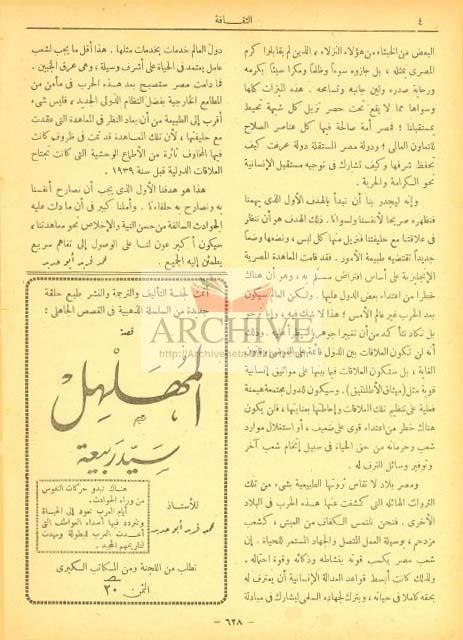 ٤
الثقافة
البعض من الخبثاء من هؤلاء النزلاء، الذين لم يقابلوا كرم
المصرى بمثله، بل جازوه سوءاً وظلماً ومكرا سيئا بكرمه
ورحابة صدره ولين جانبه وتسامحه. هذه الميزات كلها
وسواها مما لا يقع تحت حصر تزيل كل شبهة تحيط
بمستقبلنا؛ فمصر أمة صالحة فيها كل عناصر الصلاح
للتعاون العالمى؛ ودولة مصر المستقلة دولة عرفت كيف
تحفظ شرفها وكيف تشارك فى توجيه مستقبل الإنسانية
نحو الكرامة والحرية.
وإنه ليجدر بنا أن نبدأ بالهدف الأول الذى يهمنا
فنظهره صريحا لأنفسنا ولسوانا. ذلك الهدف هو أن ننظر
فى علاقتنا مع حليفتنا فنزيل منها كل لبس، ونضعها وضعاً
جديداً تقتضيه طبيعة الأمور. فقد قامت المعاهدة المصرية
الإنجليزية على أساس افتراض مسلم به، وهو أن هناك
خطرا من اعتداء بعض الدول علينا. ولكن العالم سيكون
بعد الحرب غير عالم الأمس؛ هذا لا شك فيه، وإنا نرجو
بل نكاد نتأكد من أن تغييرا جوهريا سيطرأ عليه. وذلك
أنه لن تكون العلاقات بين الدول قائمة على الفوضى وقانون
الغابة، بل ستكون العلاقات فيها بينها على مواثيق إنسانية
قوية مثل (ميثاق الأطلنطيق). وسيكون للدول مجتمعة هيمنة
فعلية على تنظيم تلك العلاقات وإحاطتها بعنايتها، فلن يكون
هناك خطر من اعتداء قوى على ضعيف، أو استغلال موارد
شعب وحرمانه من حق الحياة فى سبيل إتخام شعب آخر
وتوفير وسائل الترف له.
ومصر بلاد لا تقاس ثروتها الطبيعية بشىء من تلك
الثروات الهائلة التى كشفت عنها هذه الحرب فى البلاد
الأخرى. فنحن نلتمس الكفاف من العيش، كشعب
مزدحم، بوسيلة العمل المتصل والجهاد المستمر للحياة. إن
شعب مصر يكسب قوته بنشاطه وذكائه وقوة احتماله.
ولذلك كانت أبسط قواعد العدالة الإنسانية أن يعترف له
بحقه كاملا فى حياته، ويترك لجهاده السلمى ليشارك فى مبادلة
دول العالم خدمات بخدمات مثلها. هذا أقل ما يجب لشعب
عامل يعتمد فى الحياة على أشرف وسيلة، وهى عرق الجبين.
فما دامت مصر ستصبح بعد هذه الحرب فى مأمن من
المطامع الخارجية بفضل النظام الدولى الجديد، فليس شىء
أقرب إلى الطبيعة من أن يعاد النظر فى المعاهدة التى عقدت
مع حليفتها، لأن تلك المعاهدة قد تمت فى ظروف كانت
فيها المخاوف ثائرة من الأطماع الوحشية التى كانت تجتاح
العلاقات الدولية قبل سنة ١٩٣٩.
هذا هو هدفنا الأول الذى يجب أن نصارح أنفسنا
به ونصارح به حلفاءنا. وأملنا كبير فى أن ما دلت عليه
الحوادث السالفة من حسن النية والإخلاص نحو معاهدتنا،
سيكون أكبر عون لنا على الوصول إلى تفاهم سريع
يطمئن إليه الجميع.
محمد فريد أبو حديد
أتمت لجنة التأليف والترجمة والنشر طبع حلقة
جديدة من السلسلة الذهبية فى القصص الجاهلى:
قصة
المهلهل
سيد ربيعة
هناك تبدو حركات النفوس
من وراء الحوادث.
أيام العرب تعود إلى الحياة
وتتردد فيها أصداء العواطف التى
أعدت العرب لبطولة ومهدت
لتاريخهم المجيد.
للأستاذ
محمد فريد أبو حديد
تطلب من اللجنة ومن المكاتب الكبرى
الثمن ٣٠
ARCHIVE
— ٦٢٨ —